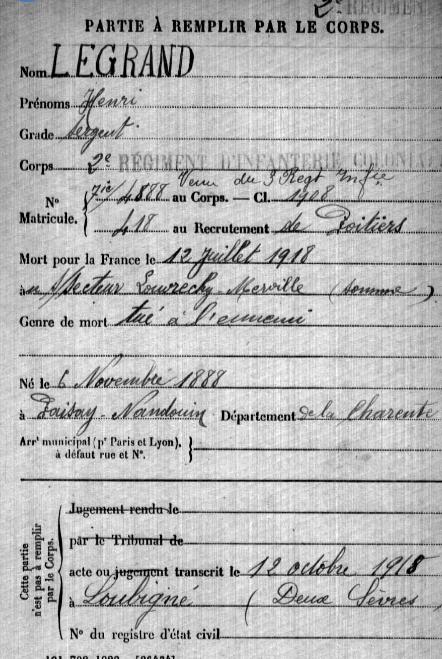 2e RÉGIMENT
PARTIE À REMPLIR PAR LE CORPS.
Nom LEGRAND
Prénoms Henri
Grade sergent
Corps 2e RÉGIMENT D'INFANTERIE COLONIA
Venu du 3 Regt Infie
No Matricule. { 4888 au Corps. — Cl. 1908
418 au Recrutement de Poitiers
Mort pour la France le 12 juillet 1918
à Secteur Merville (Somme)
Genre de mort tué à l'ennemi
Né le 6 Novembre 1888
à Paisay-Naudouin Département de la Charente
Arrt municipal (pr Paris et Lyon),
à défaut rue et No.
Cette partie n'est pas à remplir par le Corps.
Jugement rendu le
par le Tribunal de
acte ou jugement transcrit le 12 octobre 1918
à Loubigné (Deux Sèvres)
No du registre d'état civil